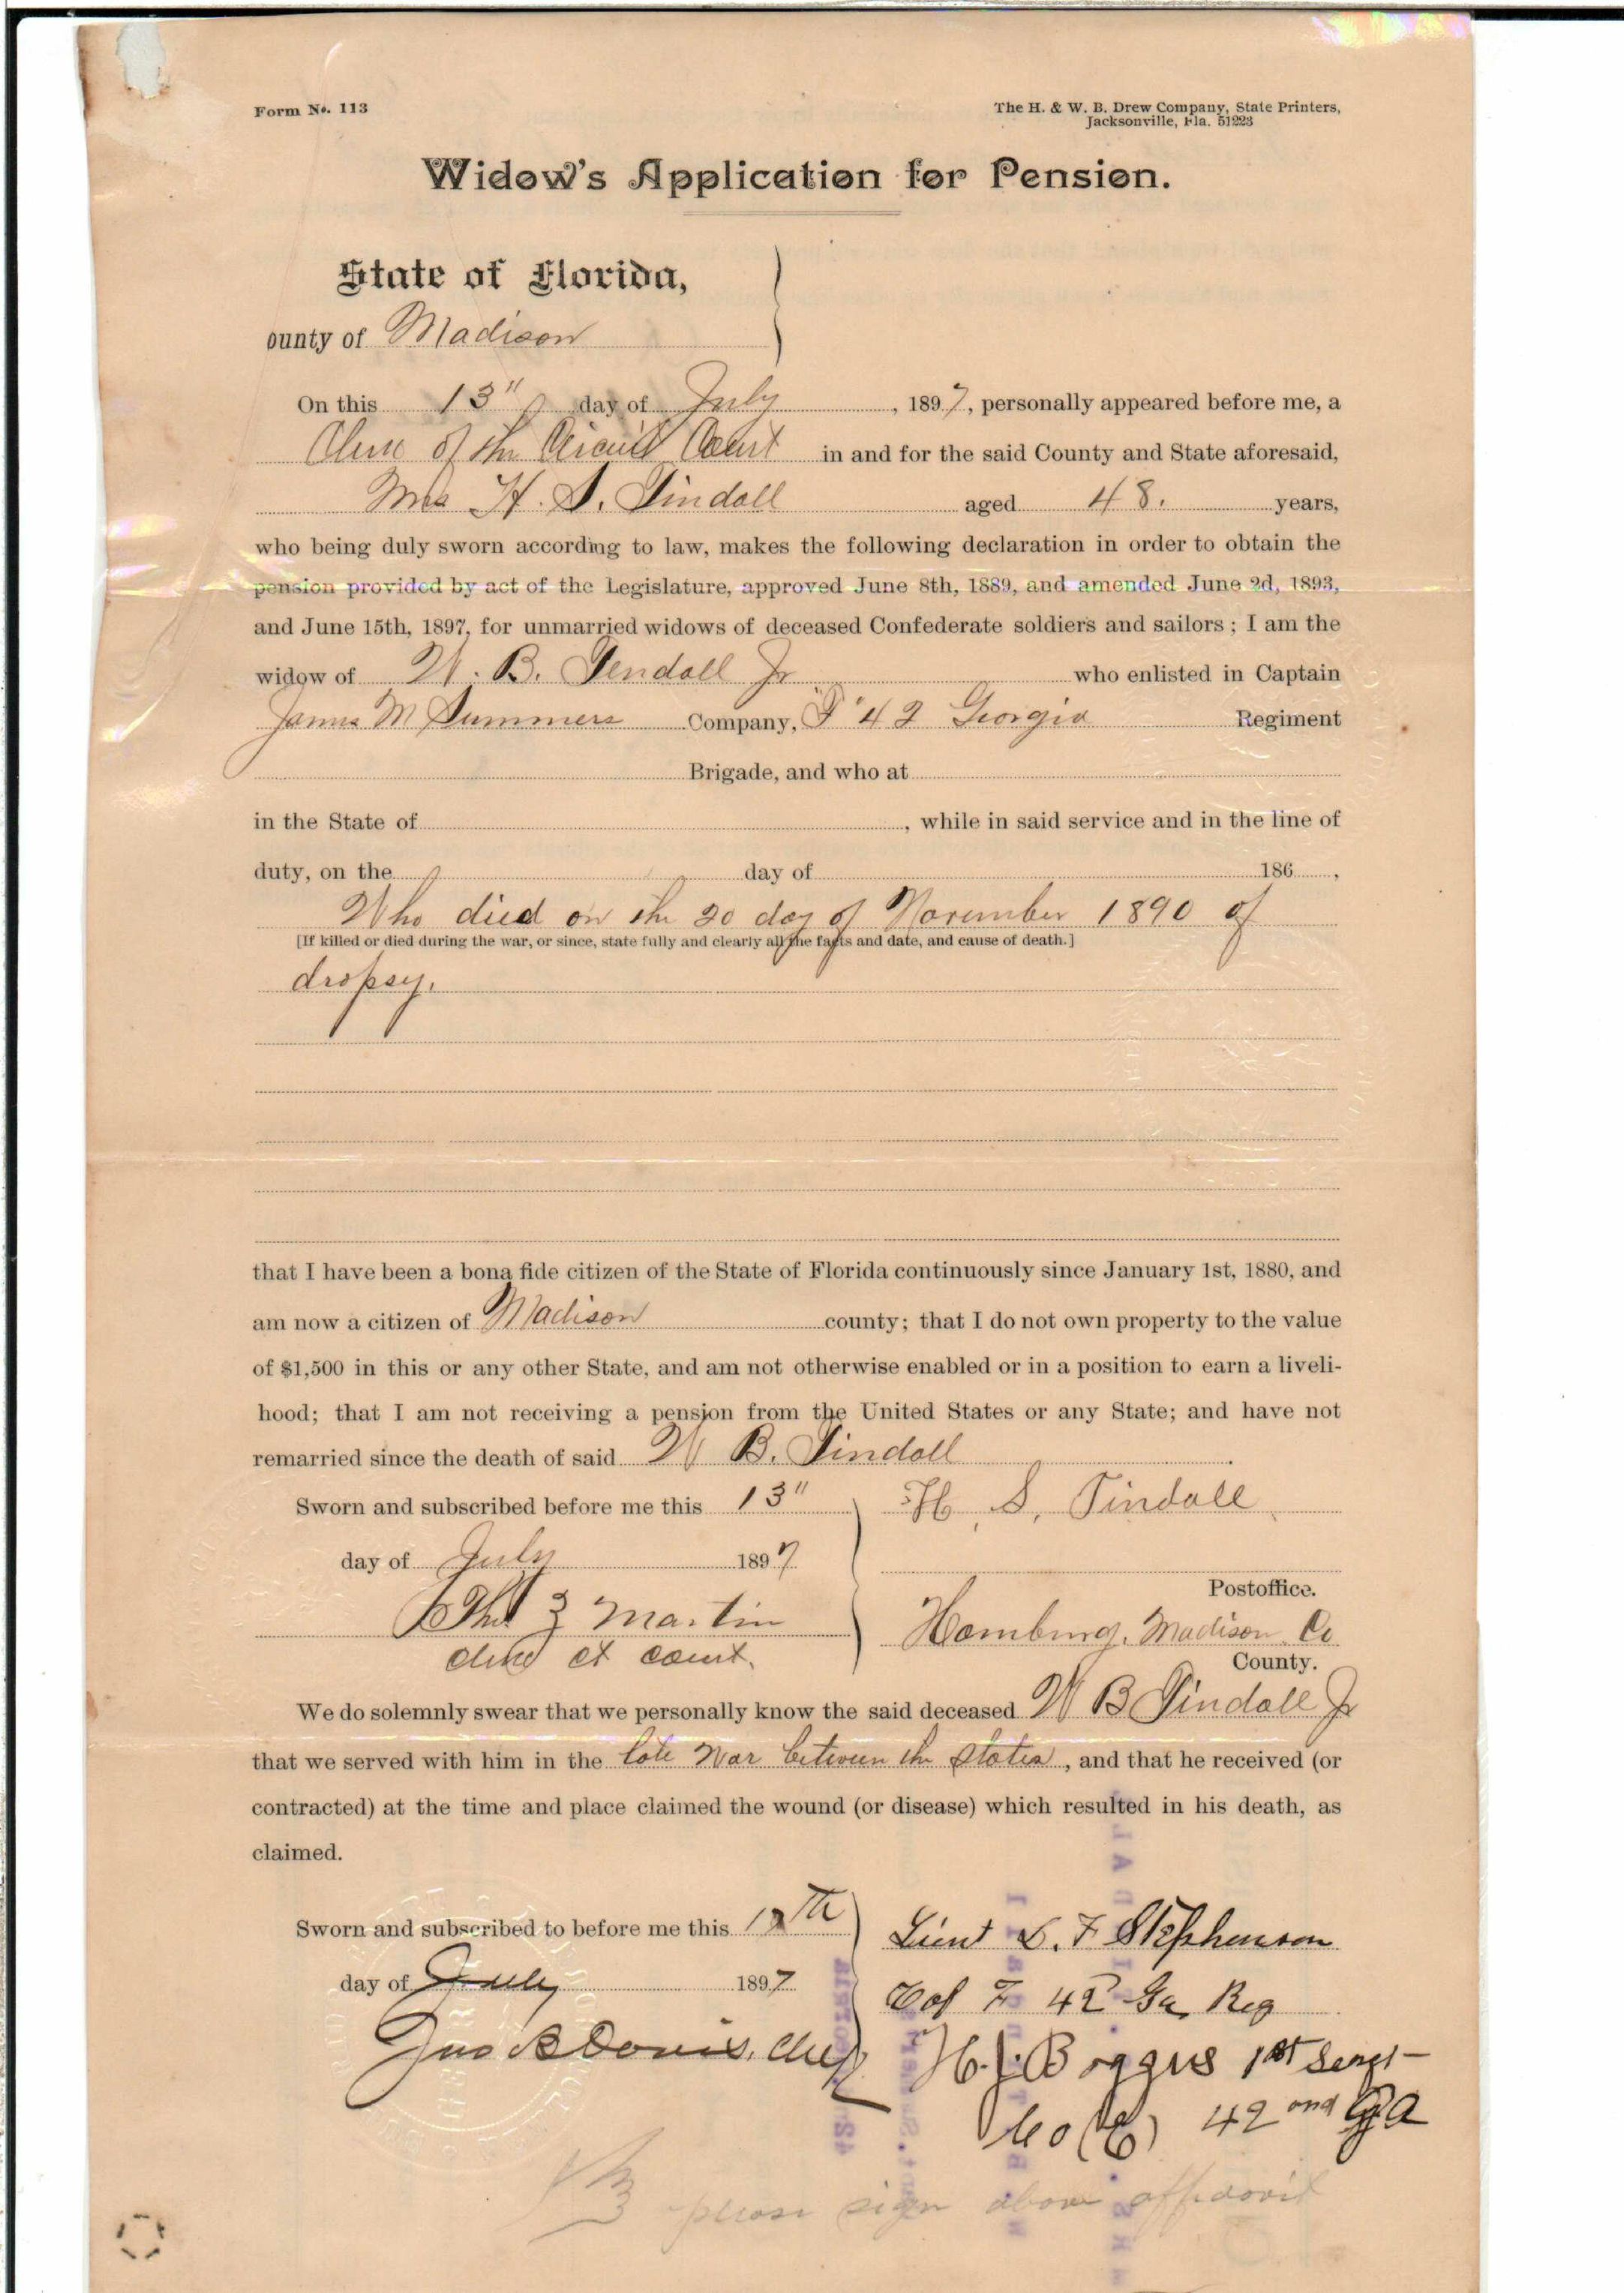 Form No. 113
The H. & W. B. Drew Company, State Printers,
Jacksonville, Fla. 51223
Widow's Application for Pension.
State of Florida,
ounty of Madison
On this 13" day of July, 1897, personally appeared before me, a
Clerk of the Circuit Court in and for the said County and State aforesaid,
Mrs H. S. Tindall aged 48. years,
who being duly sworn according to law, makes the following declaration in order to obtain the
pension provided by act of the Legislature, approved June 8th, 1889, and amended June 2d, 1893,
and June 15th, 1897, for unmarried widows of deceased Confederate soldiers and sailors; I am the
widow of W. B. Tindall Jr who enlisted in Captain
James M Summers Company, "F" 42 Georgia Regiment
Brigade, and who at
in the State of , while in said service and in the line of
duty, on the day of 186 ,
Who died on the 20 day of November 1890 of
[If killed or died during the war, or since, state fully and clearly all the facts and date, and cause of death.]
dropsy.
that I have been a bona fide citizen of the State of Florida continuously since January 1st, 1880, and
am now a citizen of Madison county; that I do not own property to the value
of $1,500 in this or any other State, and am not otherwise enabled or in a position to earn a liveli-
hood; that I am not receiving a pension from the United States or any State; and have not
remarried since the death of said W B. Tindall
Sworn and subscribed before me this 13" H. S. Tindall
day of July 1897
Postoffice.
Martin Hamburg, Madison Co
clerk ct court. County.
We do solemnly swear that we personally know the said deceased W B Tindall Jr
that we served with him in the late War between the states, and that he received (or
contracted) at the time and place claimed the wound (or disease) which resulted in his death, as
claimed.
Sworn and subscribed to before me this th Lieut L. F Stephenson
day of July 1897 Co F 42 Ga Reg
Jno B Davis, Clerk H. J. Boggus 1st Sergt
Co (E) 42 ond Ga
please sign above affidavit